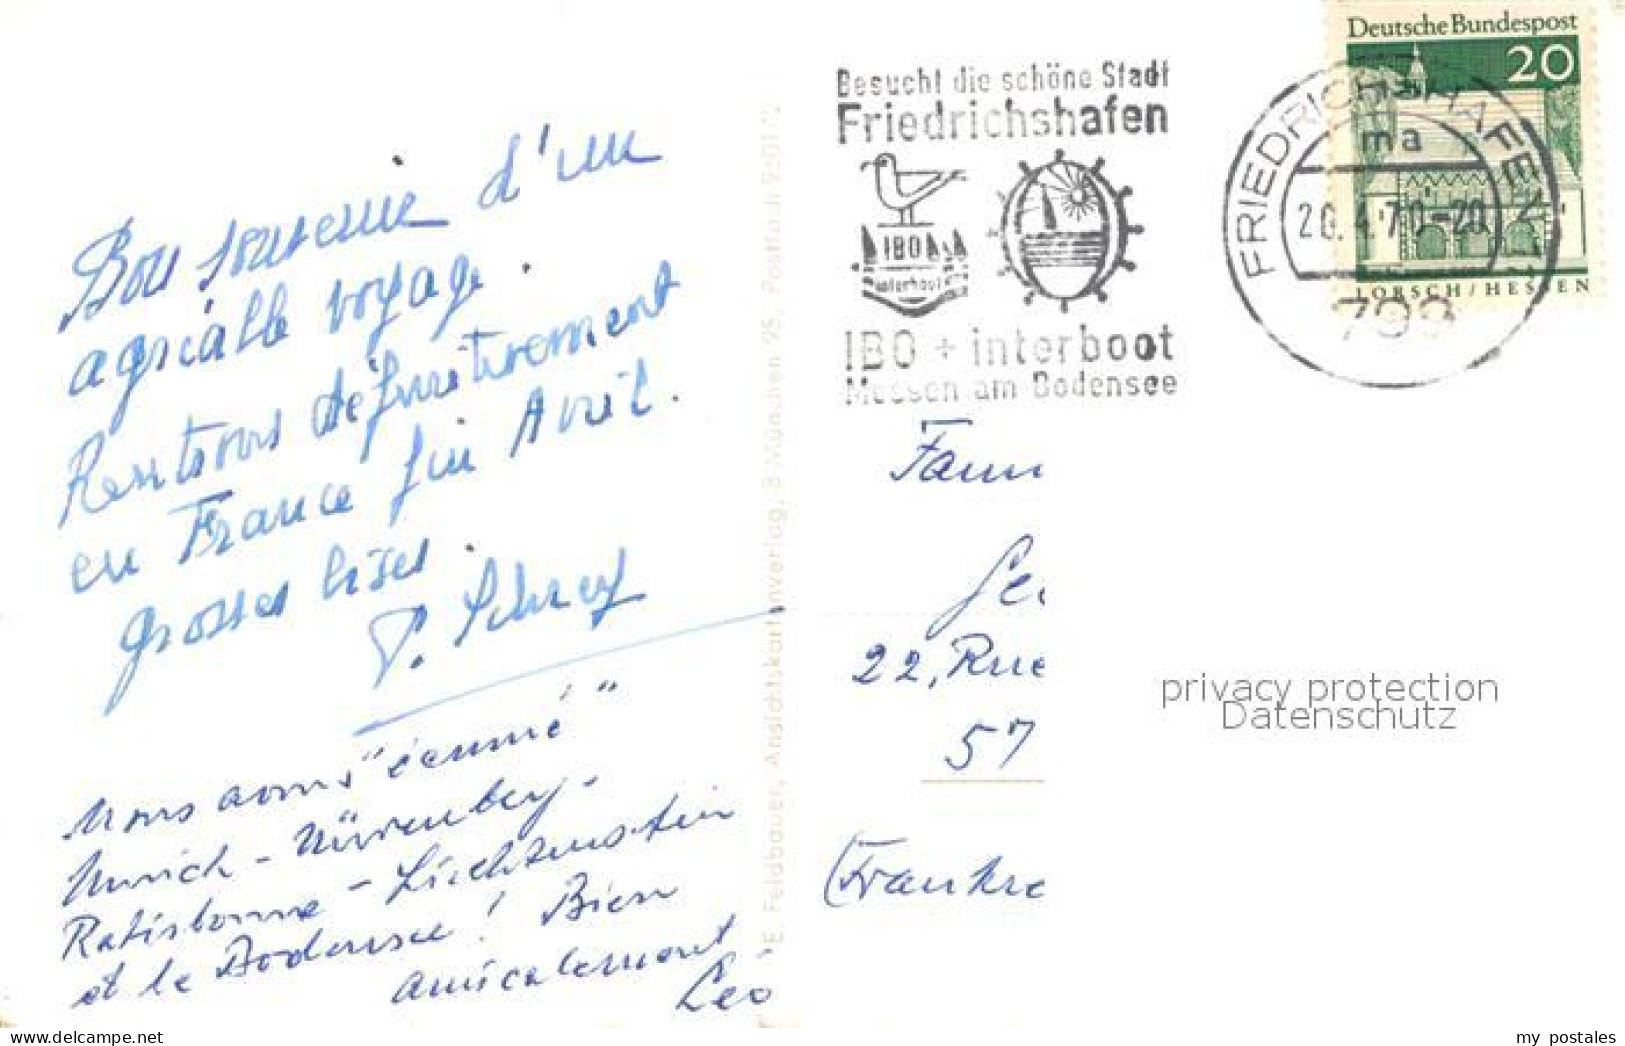 Bon souvenir d'un
agréable voyage.
Rentrons définitivement
en France fin Avril.
Grosses bises.
P.
Nous avons "écumé"
Munich - Nürenberg -
Ratisbonne - Liechtenstein
et le Bodensee! Bien
amicalement
Léo
E. Feldbauer, Ansichtskartenverlag, 8 München 95, Postfach 950172
Besucht die schöne Stadt
Friedrichshafen
IBO
interboot
IBO + interboot
Messen am Bodensee
Deutsche Bundespost
20
LORSCH/HESSEN
FRIEDRICHSHAFEN
ma
20.4.70-20
799
Fam
22, Rue
57
(Frankre
privacy protection
Datenschutz
my postales